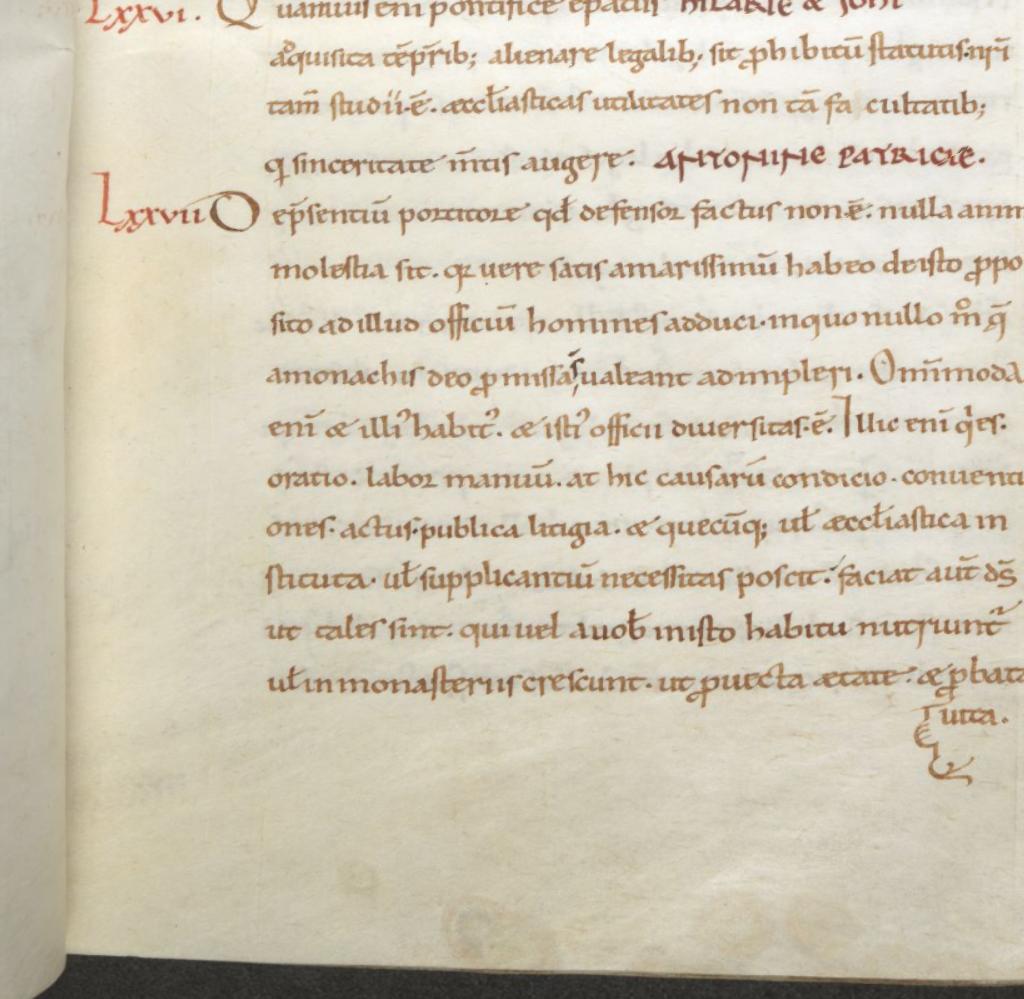 Lxxvi. Quamuis eni pontifice epatus HILARIE & IOHI
aᵒquisita tēp̄rib; alienare legalib; sit ꝓhibitū statutis. nr̄i
tam̄ studii·ē· æccl̄iasticas utilitates non tā facultatib;
qͥ sinceritate m̄tis augere. ANTONINE PATRICIÆ.
Lxxvii De p̄sentiū portitore qd̄ defensor factus non·ē· nulla anim
molestia sit. qꝛ uere satis amarissimū habeo de isto ꝓpo
sito ad illud officiū homines adduci· in quo nullo m̊ q̄
a monachis deo ꝓmissa s̄ ualeant adimpleri. Om̄imoda
eni̅ & illi᾽ habit᾽. & isti᾽ officii diuersitas·ē· Illic eni̅ qͥes.
oratio. labor manuū. at hic causarū condicio. conuenti
ones. actus. publica litigia. & quecūq; ul̄ æccl̄iastica in
stituta. ul̄ supplicantiū necessitas poscit. faciat aut̄ ds̄
ut tales sint. qui uel a uob̄ in isto habitu nutriunt᾽
ul̄ in monasteriis crescunt. ut ꝓuecta ætate. & ꝓbata
uita.